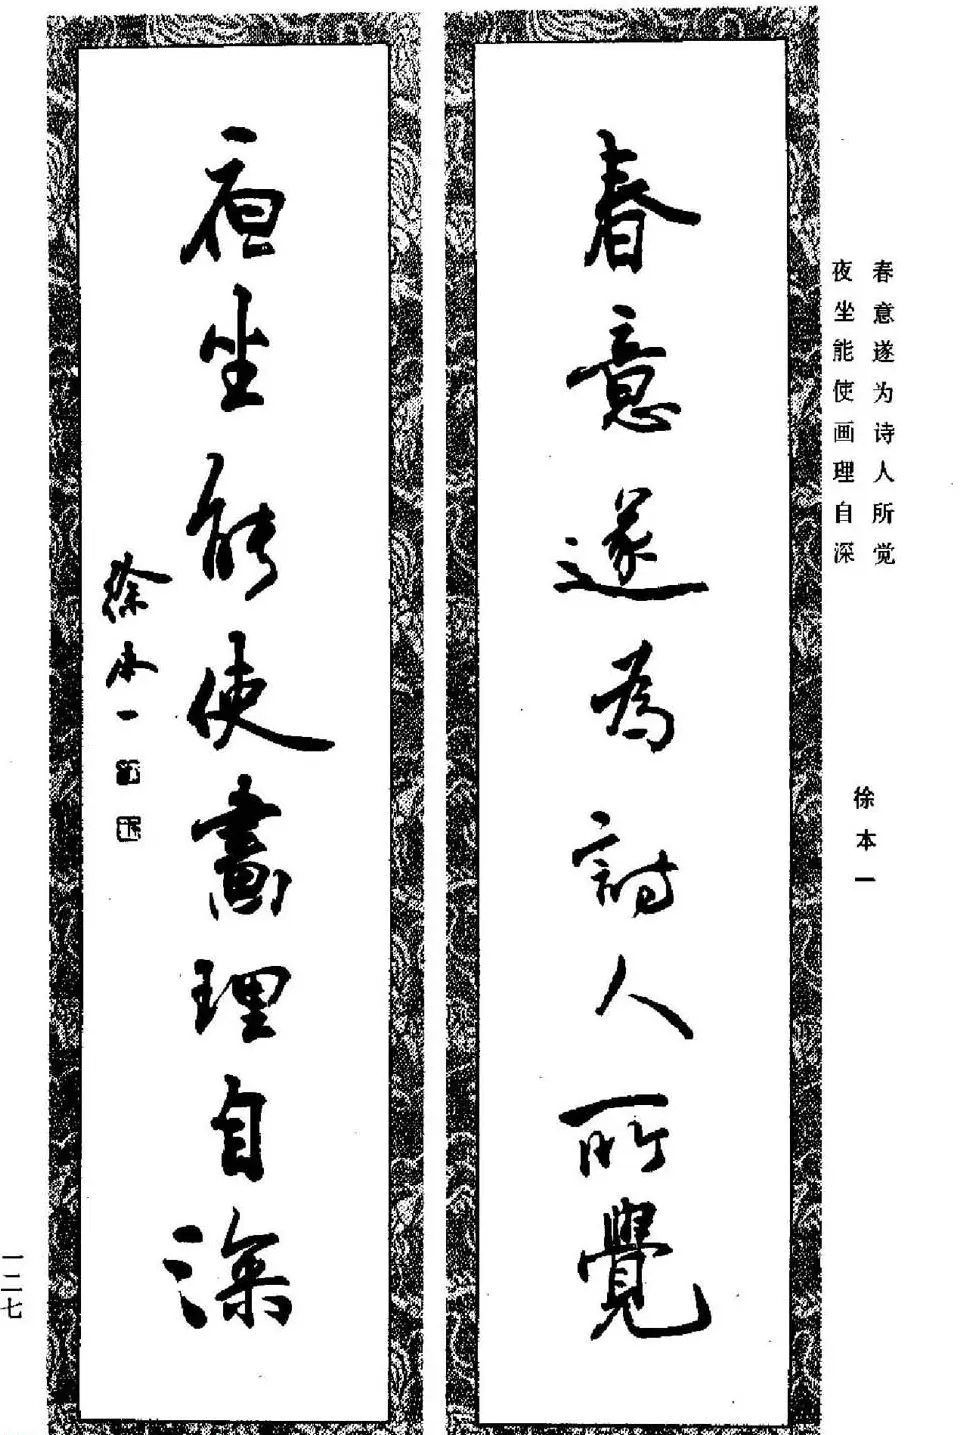 春意遂为诗人所觉
夜坐能使画理自深
徐本一
春意遂為詩人所覺
夜坐能使畫理自深
徐本一
一二七